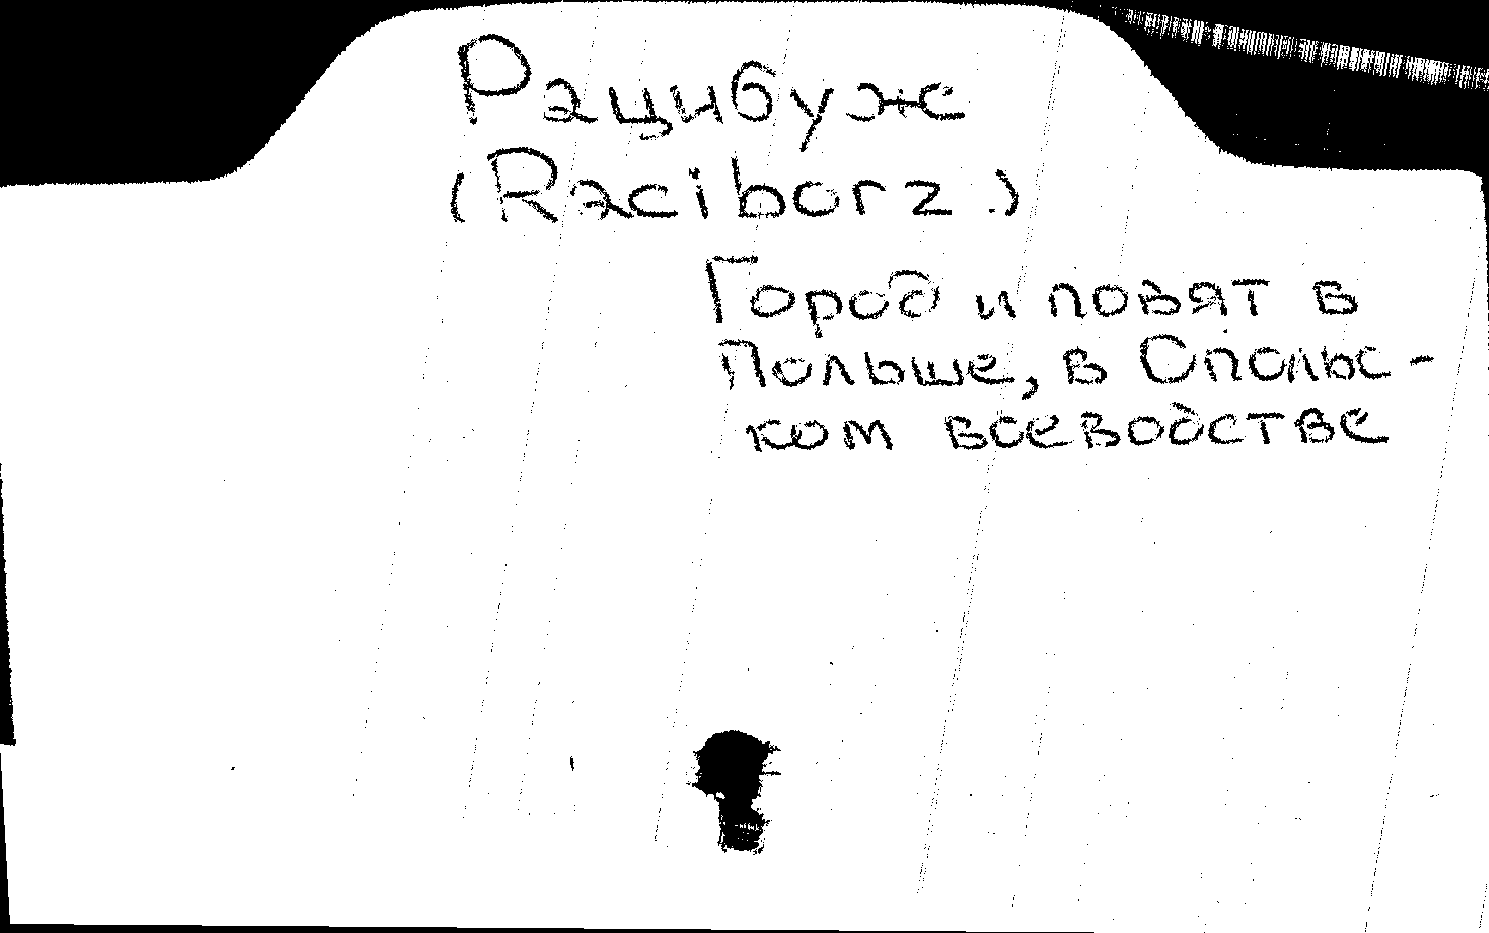 Рацибуж
(Raciborz.)
Город и повят в
Польше, в Опольс-
ком воеводстве